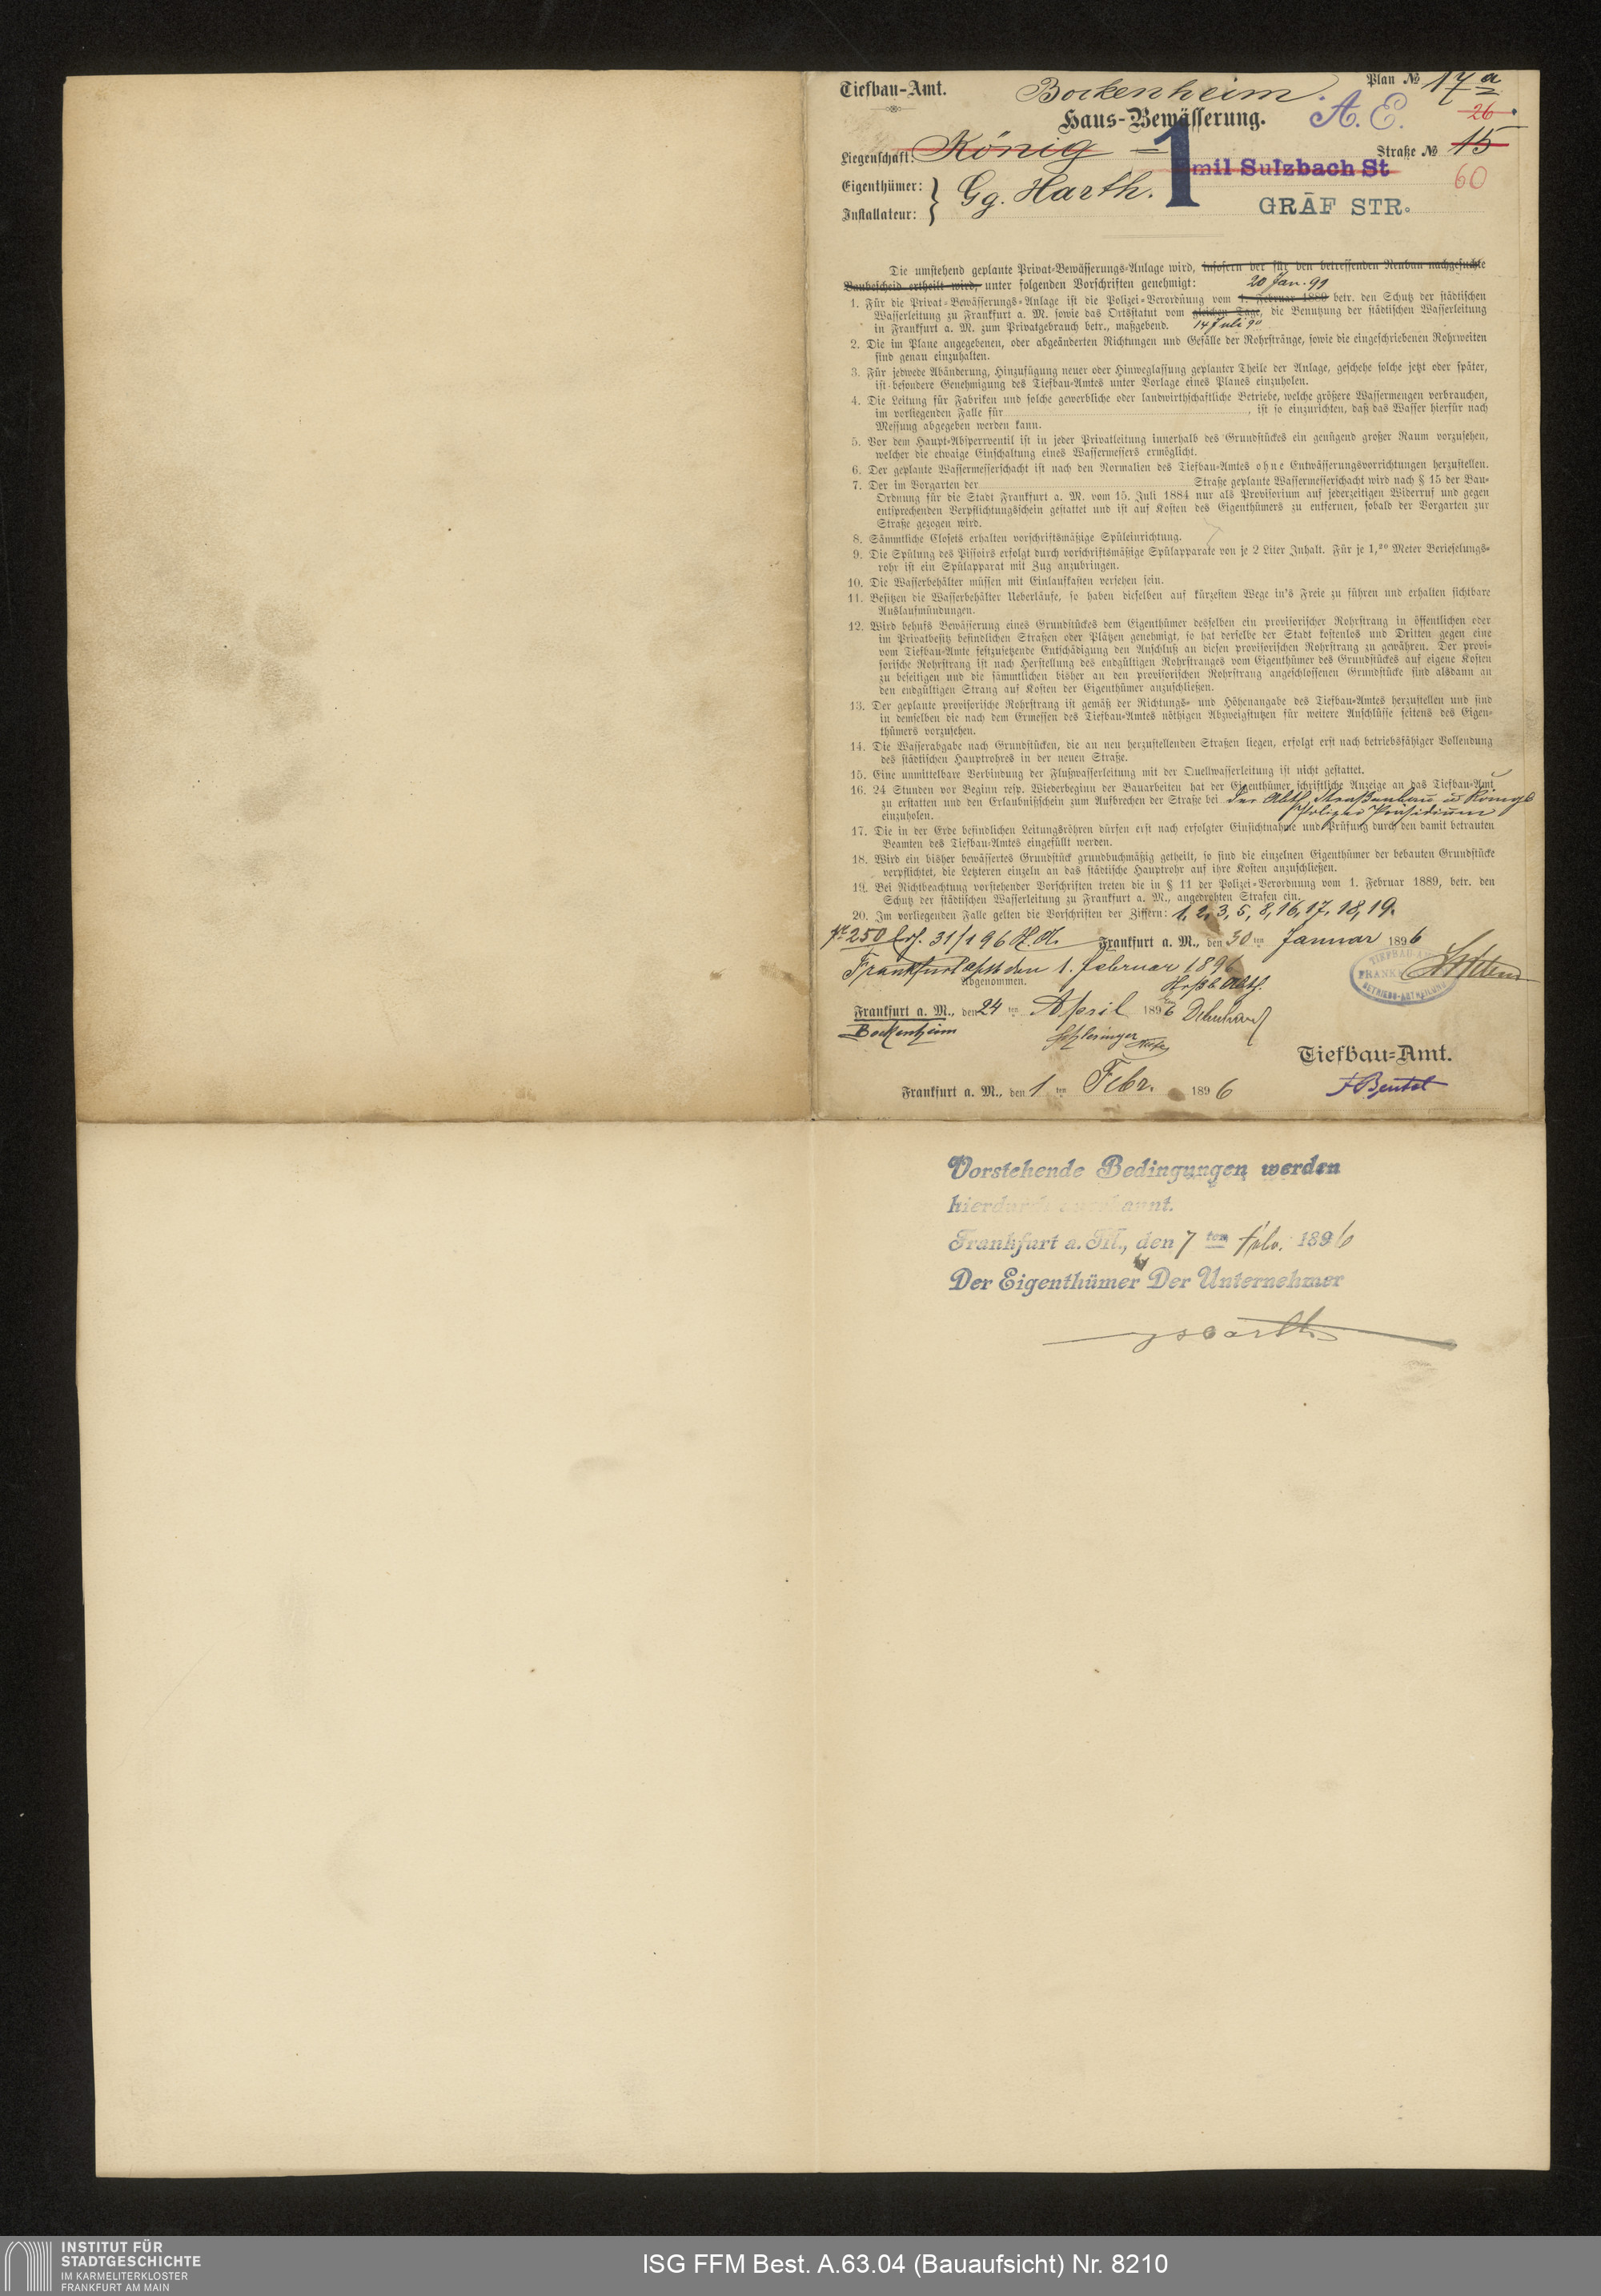 Tiefbau-Amt.
Bockenheim.
Plan № 17 a
Haus-Bewässerung.
A. E.
26
Liegenschaft: König –
1
Straße № 15
Emil Sulzbach St
60
Eigenthümer:
Installateur: } Gg. Harth.
GRÄF STR.
Die umstehend geplante Privat-Bewässerungs-Anlage wird, insofern der für den betreffenden Neubau nachgesuchte
Baubescheid ertheilt wird, unter folgenden Vorschriften genehmigt: 20 Jan. 99
1. Für die Privat-Bewässerungs-Anlage ist die Polizei-Verordnung vom 1. Februar 1889 betr. den Schutz der städtischen
Wasserleitung zu Frankfurt a. M. sowie das Ortsstatut vom gleichen Tage, die Benutzung der städtischen Wasserleitung
in Frankfurt a. M. zum Privatgebrauch betr., maßgebend. 14 Juli 90
2. Die im Plane angegebenen, oder abgeänderten Richtungen und Gefälle der Rohrstränge, sowie die eingeschriebenen Rohrweiten
sind genau einzuhalten.
3. Für jedwede Abänderung, Hinzufügung neuer oder Hinweglassung geplanter Theile der Anlage, geschehe solche jetzt oder später,
ist besondere Genehmigung des Tiefbau-Amtes unter Vorlage eines Planes einzuholen.
4. Die Leitung für Fabriken und solche gewerbliche oder landwirthschaftliche Betriebe, welche größere Wassermengen verbrauchen,
im vorliegenden Falle für , ist so einzurichten, daß das Wasser hierfür nach
Messung abgegeben werden kann.
5. Vor dem Haupt-Absperrventil ist in jeder Privatleitung innerhalb des Grundstückes ein genügend großer Raum vorzusehen,
welcher die etwaige Einschaltung eines Wassermessers ermöglicht.
6. Der geplante Wassermesserschacht ist nach den Normalien des Tiefbau-Amtes ohne Entwässerungsvorrichtungen herzustellen.
7. Der im Vorgarten der Straße geplante Wassermesserschacht wird nach § 15 der Bau-
Ordnung für die Stadt Frankfurt a. M. vom 15. Juli 1884 nur als Provisorium auf jederzeitigen Widerruf und gegen
entsprechenden Verpflichtungsschein gestattet und ist auf Kosten des Eigenthümers zu entfernen, sobald der Vorgarten zur
Straße gezogen wird.
8. Sämmtliche Closets erhalten vorschriftsmäßige Spüleinrichtung.
9. Die Spülung des Pissoirs erfolgt durch vorschriftsmäßige Spülapparate von je 2 Liter Inhalt. Für je 1,20 Meter Berieselungs-
rohr ist ein Spülapparat mit Zug anzubringen.
10. Die Wasserbehälter müssen mit Einlaufkasten versehen sein.
11. Besitzen die Wasserbehälter Ueberläufe, so haben dieselben auf kürzestem Wege in's Freie zu führen und erhalten sichtbare
Auslaufmündungen.
12. Wird behufs Bewässerung eines Grundstückes dem Eigenthümer desselben ein provisorischer Rohrstrang in öffentlichen oder
im Privatbesitz befindlichen Straßen oder Plätzen genehmigt, so hat derselbe der Stadt kostenlos und Dritten gegen eine
vom Tiefbau-Amte festzusetzende Entschädigung den Anschluß an diesen provisorischen Rohrstrang zu gewähren. Der provi-
sorische Rohrstrang ist nach Herstellung des endgültigen Rohrstranges vom Eigenthümer des Grundstückes auf eigene Kosten
zu beseitigen und die sämmtlichen bisher an den provisorischen Rohrstrang angeschlossenen Grundstücke sind alsdann an
den endgültigen Strang auf Kosten der Eigenthümer anzuschließen.
13. Der geplante provisorische Rohrstrang ist gemäß der Richtungs- und Höhenangabe des Tiefbau-Amtes herzustellen und sind
in demselben die nach dem Ermessen des Tiefbau-Amtes nöthigen Abzweigstutzen für weitere Anschlüsse seitens des Eigen-
thümers vorzusehen.
14. Die Wasserabgabe nach Grundstücken, die an neu herzustellenden Straßen liegen, erfolgt erst nach betriebsfähiger Vollendung
des städtischen Hauptrohres in der neuen Straße.
15. Eine unmittelbare Verbindung der Flußwasserleitung mit der Quellwasserleitung ist nicht gestattet.
16. 24 Stunden vor Beginn resp. Wiederbeginn der Bauarbeiten hat der Eigenthümer schriftliche Anzeige an das Tiefbau-Amt
zu erstatten und den Erlaubnißschein zum Aufbrechen der Straße bei der Abth. Straßenbau u Königl
Polizei Präsidium
einzuholen.
17. Die in der Erde befindlichen Leitungsröhren dürfen erst nach erfolgter Einsichtnahme und Prüfung durch den damit betrauten
Beamten des Tiefbau-Amtes eingefüllt werden.
18. Wird ein bisher bewässertes Grundstück grundbuchmäßig getheilt, so sind die einzelnen Eigenthümer der bebauten Grundstücke
verpflichtet, die Letzteren einzeln an das städtische Hauptrohr auf ihre Kosten anzuschließen.
19. Bei Nichtbeachtung vorstehender Vorschriften treten die in § 11 der Polizei-Verordnung vom 1. Februar 1889, betr. den
Schutz der städtischen Wasserleitung zu Frankfurt a. M., angedrohten Strafen ein.
20. Im vorliegenden Falle gelten die Vorschriften der Ziffern: 1, 2, 3, 5, 8, 16, 17, 18, 19.
250 31/1 96 Frankfurt a. M., den 30 ten Januar 1896
Frankfurt a/M den 1. Februar 1896
TIEFBAU-AMT FRANKFURT BETRIEBS-ABTHEILUNG
Abgenommen.
Frankfurt a. M., den 24 ten April 1896
Bockenheim
Schlesinger
Tiefbau-Amt.
Frankfurt a. M., den 1 ten Febr. 1896
Vorstehende Bedingungen werden
hierdurch anerkannt.
Frankfurt a. M., den 7 ten Febr. 1896
Der Eigenthümer Der Unternehmer
INSTITUT FÜR
STADTGESCHICHTE
IM KARMELITERKLOSTER
FRANKFURT AM MAIN
ISG FFM Best. A.63.04 (Bauaufsicht) Nr. 8210